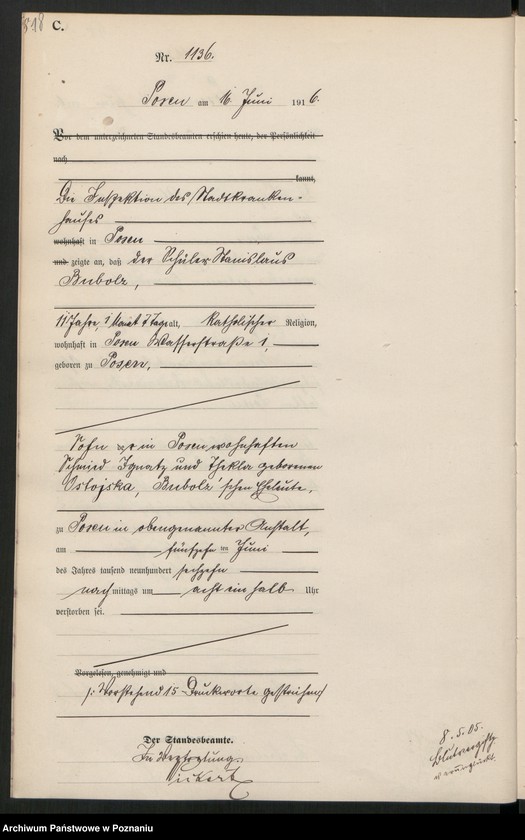 818 C.
Nr. 1136.
Posen am 16. Juni 1916.
Vor dem unterzeichneten Standesbeamten erschien heute, der Persönlichkeit
nach
kannt,
Die Inspektion des Stadtkranken-
hauses
wohnhaft in Posen
und zeigte an, daß der Schüler Stanislaus
Bubolz,
11 Jahre, 1 Monat 7 Tage alt, katholischer Religion,
wohnhaft in Posen Wasserstraße 1,
geboren zu Posen,
Sohn der in Posen wohnhaften
Schmied Ignatz und Thekla geborenen
Ostojska, Bubolz'schen Eheleute,
zu Posen in obengenannter Anstalt,
am fünfzehnten Juni
des Jahres tausend neunhundert sechzehn
nachmittags um acht ein halb Uhr
verstorben sei.
Vorgelesen, genehmigt und
/: Vorstehend 15 Druckworte gestrichen/
Der Standesbeamte.
In Vertretung
8. 5. 05.
Blutvergiftg
verunglückt.
Archiwum Państwowe w Poznaniu